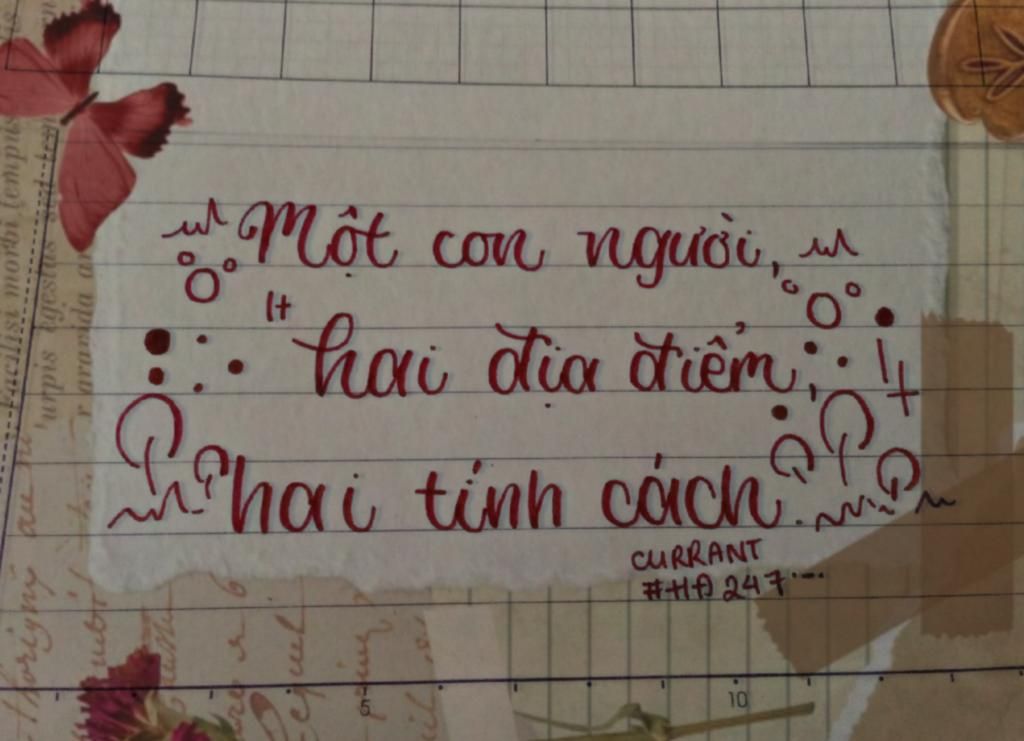 Một con người,
hai địa điểm,
hai tính cách.
CURRANT
#HĐ247
5
10